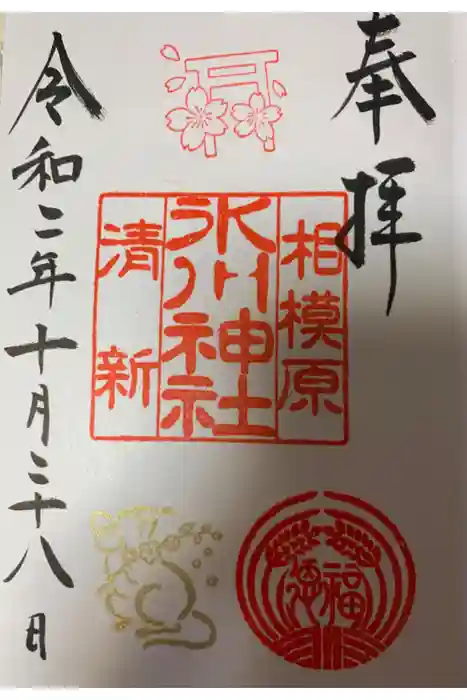 奉拝
相模原
氷川神社
清新
福徳
令和二年十月二十八日